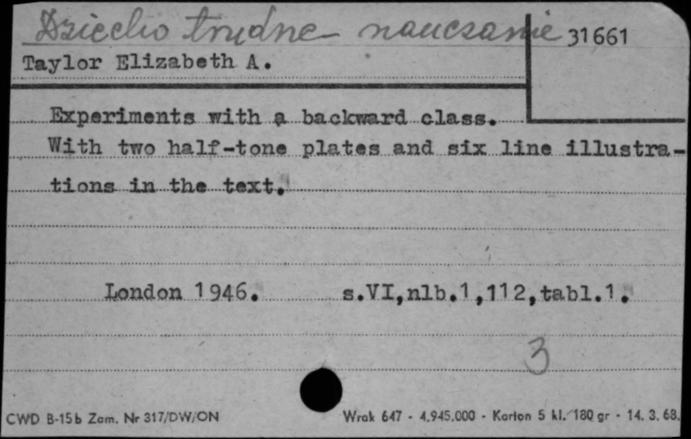 Dziecko trudne - nauczanie
31661
Taylor Elizabeth A.
Experiments with a backward class.
With two half-tone plates and six line illustra-
tions in the text.
London 1946. s.VI,nlb.1,112,tabl.1.
3
CWD B-15b Zam. Nr 317/DW/ON
Wrak 647 - 4.945.000 - Karton 5 kl. 180 gr - 14. 3. 68.